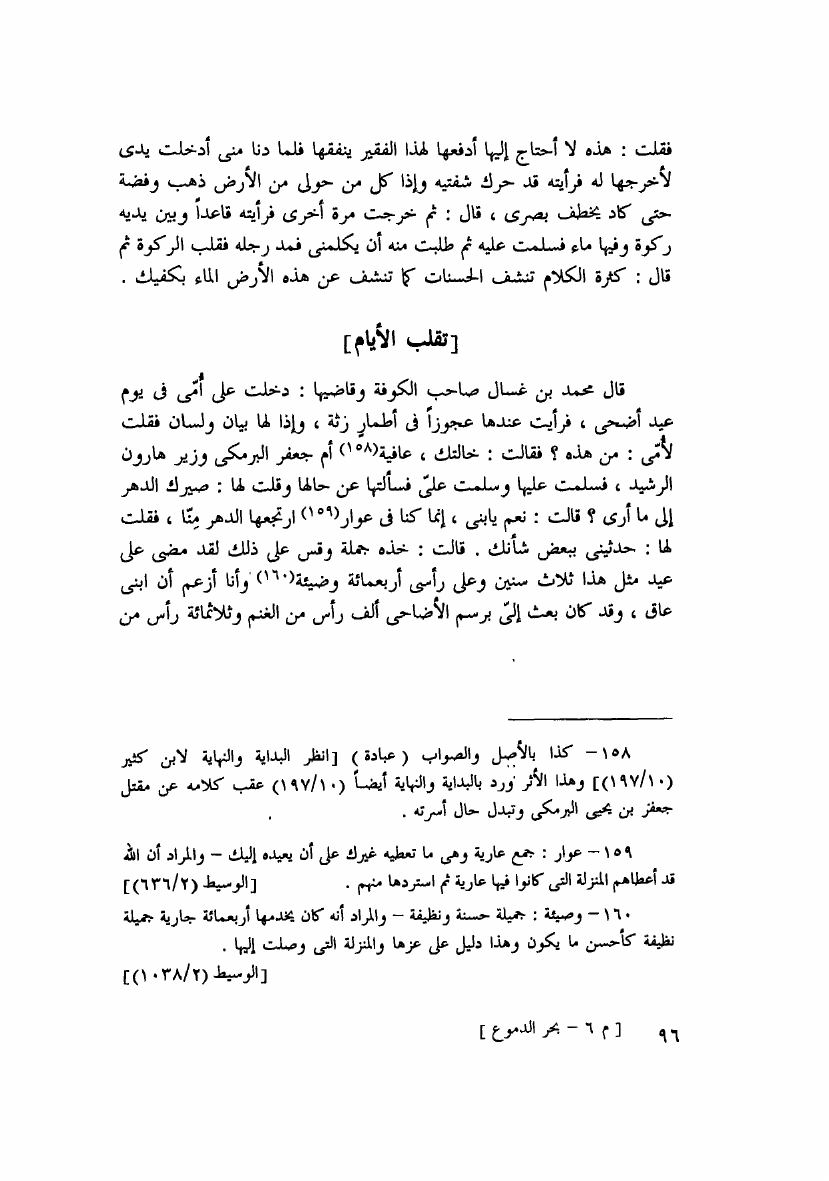 فقلت : هذه لا أحتاج إليها أدفعها لهذا الفقير ينفقها فلما دنا منى أدخلت يدى
لأخرجها له فرأيته قد حرك شفتيه وإذا كل من حولى من الأرض ذهب وفضة
حتى كاد يخطف بصرى ، قال : ثم خرجت مرة أخرى فرأيته قاعداً وبين يديه
ركوة وفيها ماء فسلمت عليه ثم طلبت منه أن يكلمنى فمد رجله فقلب الركوة ثم
قال : كثرة الكلام تنشف الحسنات كما تنشف عن هذه الأرض الماء بكفيك .
[تقلب الأيام]
قال محمد بن غسال صاحب الكوفة وقاضيها : دخلت على أُمّى فى يوم
عيد أضحى ، فرأيت عندها عجوزاً فى أطمارٍ رثة ، وإذا لها بيان ولسان فقلت
لأُمّى : من هذه ؟ فقالت : خالتك ، عافية(١٥٨) أم جعفر البرمكى وزير هارون
الرشيد ، فسلمت عليها وسلمت علىّ فسألتها عن حالها وقلت لها : صيرك الدهر
إلى ما أرى ؟ قالت : نعم يابنى ، إنما كنا فى عوار(١٥٩) ارتجعها الدهر مِنّا ، فقلت
لها : حدثينى ببعض شأنك . قالت : خذه جملة وقس على ذلك لقد مضى على
عيد مثل هذا ثلاث سنين وعلى رأسى أربعمائة وضيئة(١٦٠) وأنا أزعم أن ابنى
عاق ، وقد كان بعث إلىّ برسم الأضاحى ألف رأس من الغنم وثلاثمائة رأس من
١٥٨ – كذا بالأصل والصواب ( عبادة ) [انظر البداية والنهاية لابن كثير
(١٩٧/١٠)] وهذا الأثر ورد بالبداية والنهاية أيضاً (١٩٧/١٠) عقب كلامه عن مقتل
جعفر بن يحيى البرمكى وتبدل حال أسرته .
١٥٩ – عوار : جمع عارية وهى ما تعطيه غيرك على أن يعيده إليك – والمراد أن الله
قد أعطاهم المنزلة التى كانوا فيها عارية ثم استردها منهم . [الوسيط (٦٣٦/٢)]
١٦٠ – وضيئة : جميلة حسنة ونظيفة – والمراد أنه كان يخدمها أربعمائة جارية جميلة
نظيفة كأحسن ما يكون وهذا دليل على عزها والمنزلة التى وصلت إليها .
[الوسيط (١٠٣٨/٢)]
٩٦ [ م ٦ – بحر الدموع ]